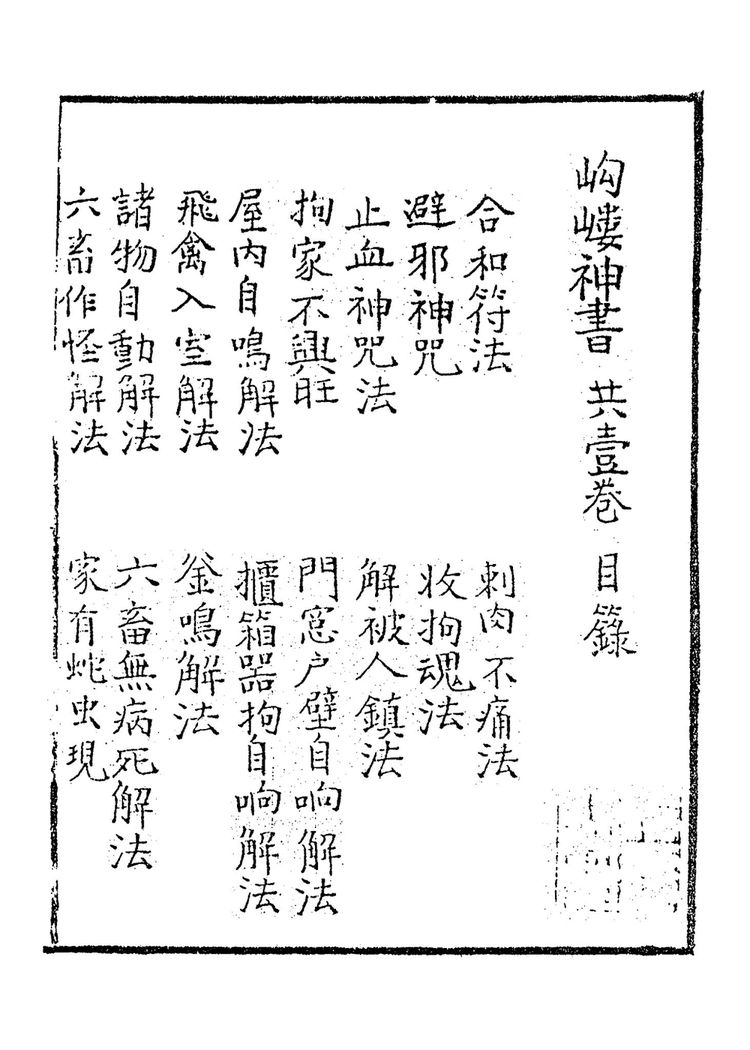 岣嶁神書 共壹卷 目籙
合和符法 刺肉不痛法
避邪神咒 收拘魂法
止血神咒法 解被人鎮法
拘家不興旺 門窓户壁自响解法
屋内自鳴解法 櫃箱器拘自响解法
飛禽入室解法 釜鳴解法
諸物自動解法 六畜無病死解法
六畜作怪解法 家有蛇虫現